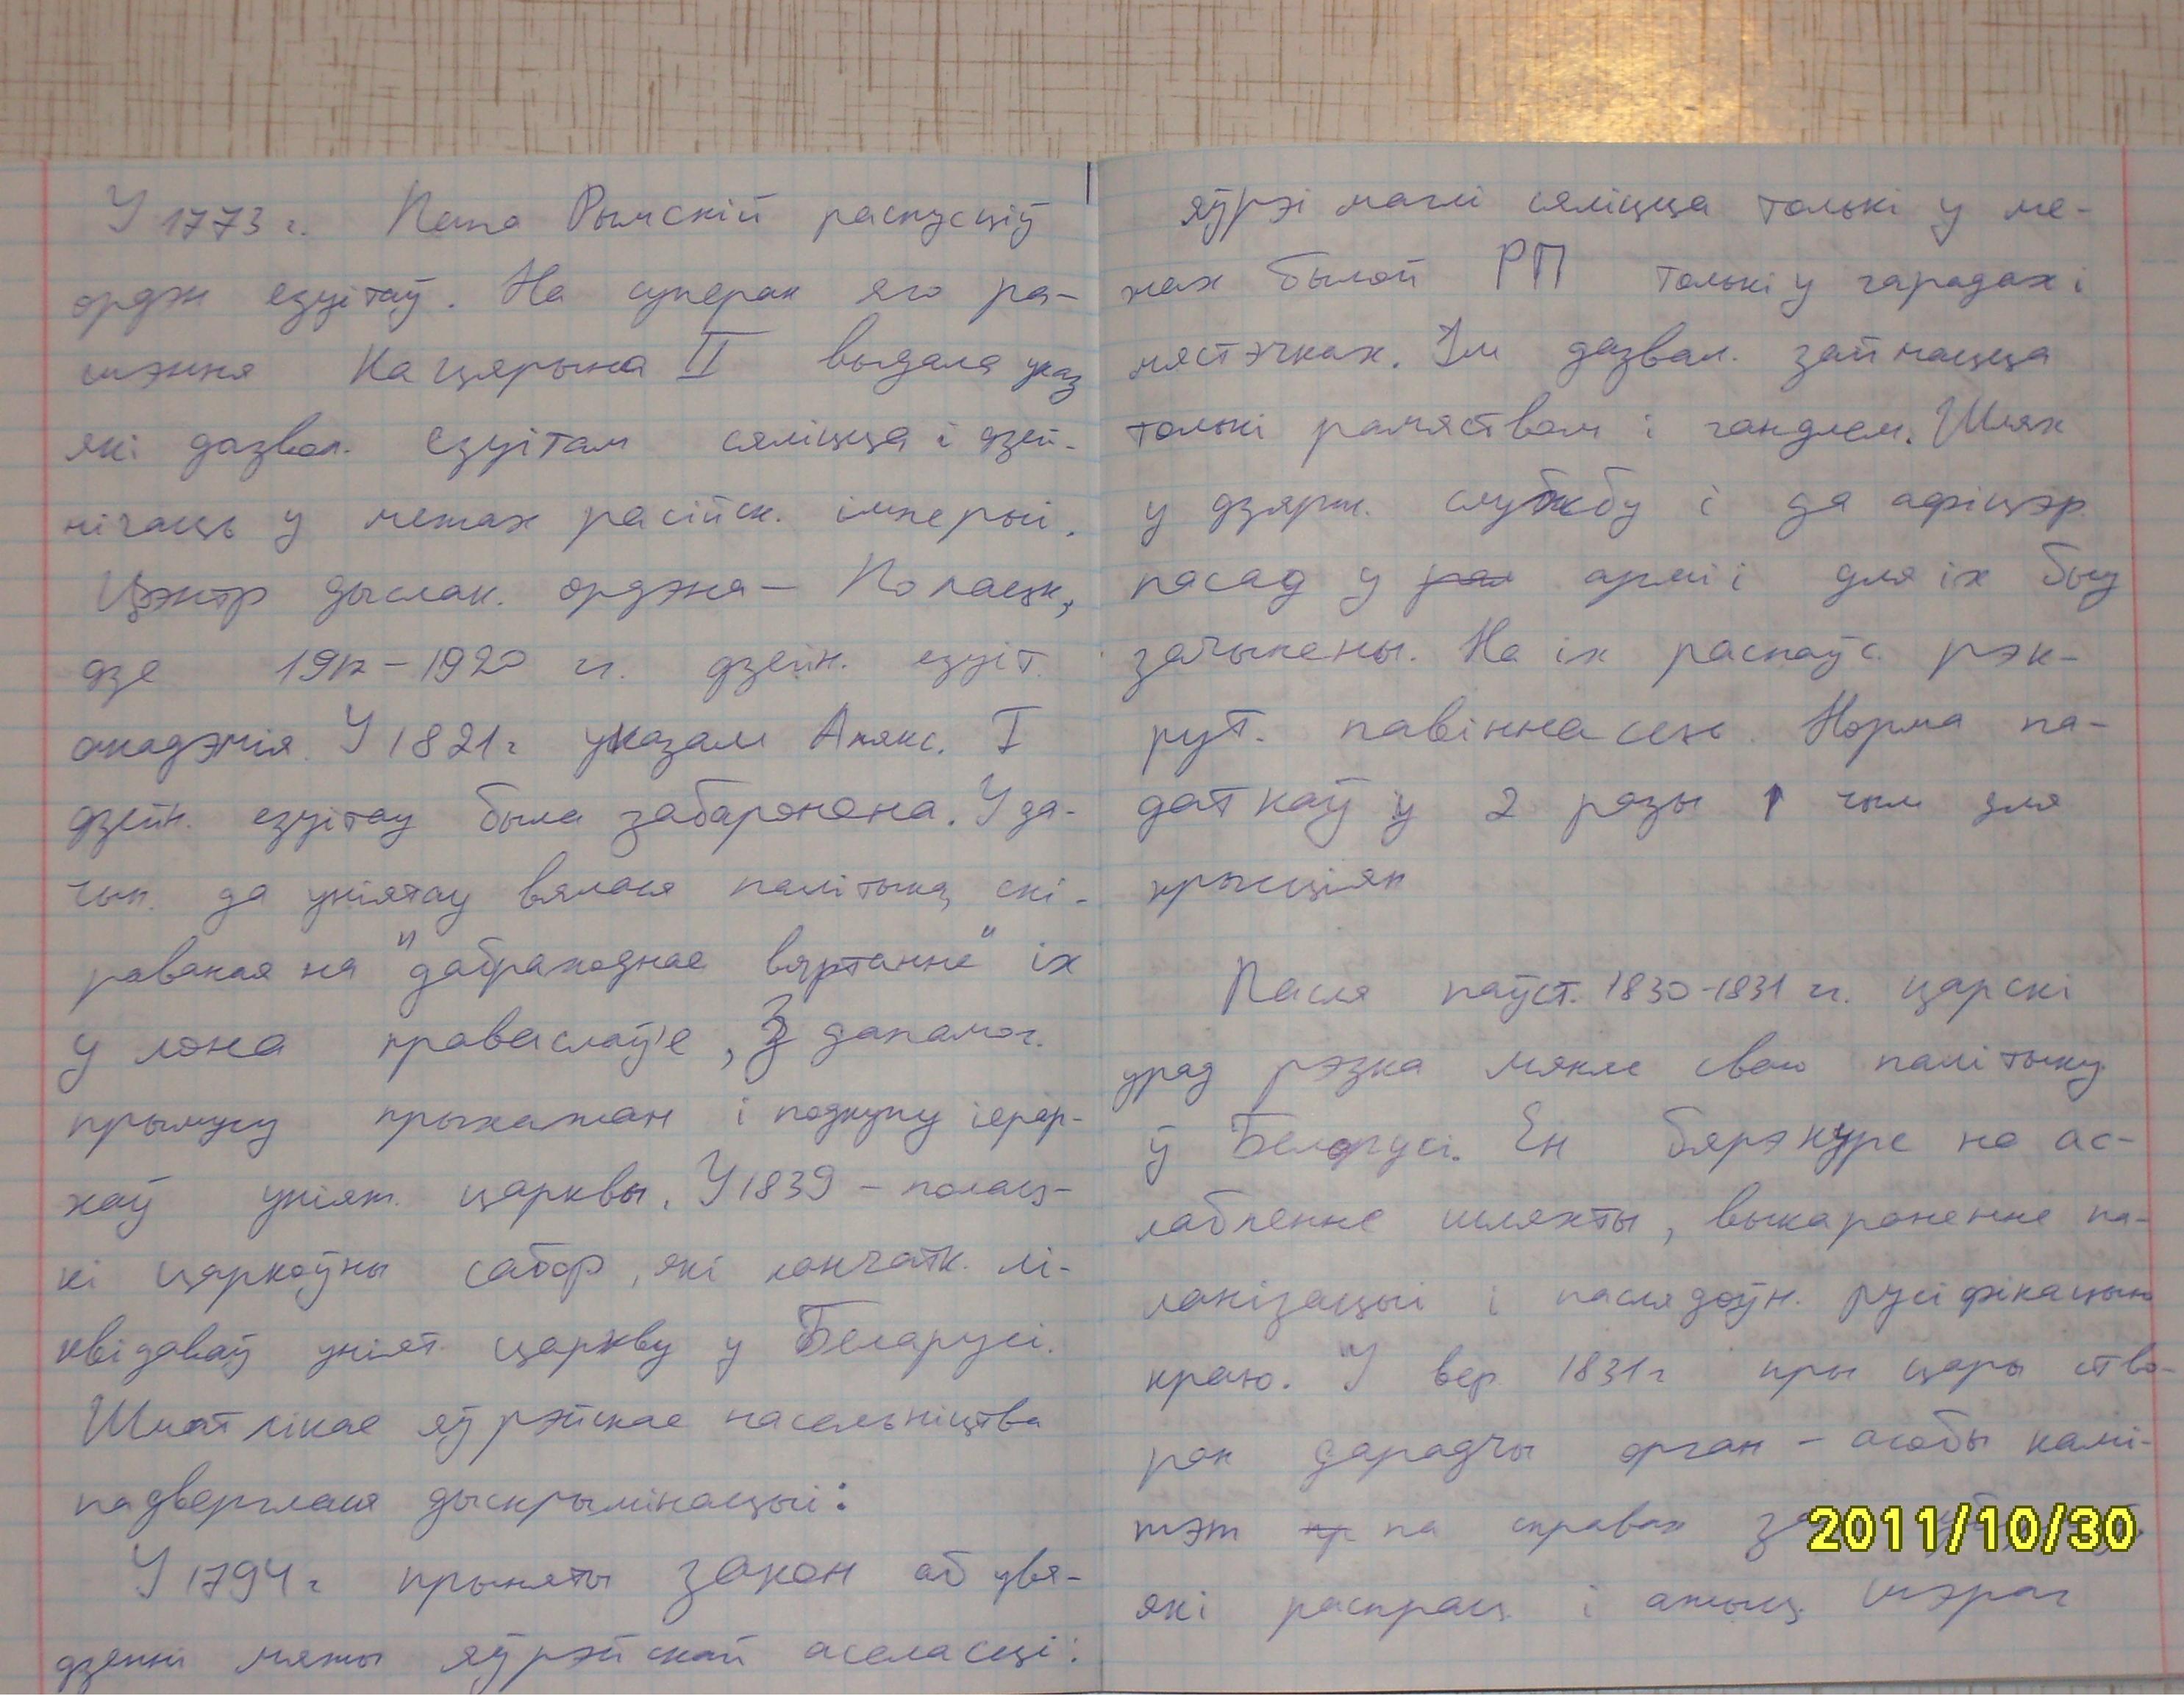 У 1773 г. Папа Рымскій распусціў
ордэн езуітаў. На суперак яго ра-
шэння Кацярына II выдала указ
які дазвол. езуітам сяліцца і дзей-
нічаць у межах расійск. імперыі.
Цэнтр дыслак. ордэна - Полацк,
дзе 1912-1920 гг. дзейн. езуіт.
акадэмія. У 1821 г указам Алякс. I
дзейн. езуітау была забаронена. У да-
чын. да уніятау вялася палітыка, скі-
раваная на "добраходнае вяртанне" іх
у лона праваслаў'е, З дапамог.
прымусу прыхажан і подкупу іерар-
хаў уніят. царквы. У 1839 - полац-
кі царкоўны сабор, які канчатк. лі-
квідаваў уніят. царкву у Беларусі.
Шматлікае яўрэйскае насельніцтва
падверглася дыскрымінацыі:
У 1794 г прыняты закон аб увя-
дзенні мяжы яўрэйскай аселасці:
яўрэі маглі сяліцца толькі у ме-
жах былой РП толькі у гарадах і
мястэчках. Ім дазвал. займацца
толькі рамяством і гандлем. Шлях
у дзярж. службу і да афіцэр.
пасад у арміі для іх быу
зачынены. На іх распаўс. рэк-
рут. павіннасць. Норма па-
даткаў у 2 разы ↑ чым для
хрысціян
Пасля паўст. 1830-1831 гг. царскі
урад рэзка мяняе сваю палітыку
ў Беларусі. Ен бярэ курс на ас-
лабленне шляхты, выкараненне па-
ланізацыі і паслядоўн. русіфікацыю
краю. У вер 1831 г пры цары ство-
ран дарадчы орган - асобы камі-
тэт па справах
які распрац. і ажыц. шэраг
2011/10/30